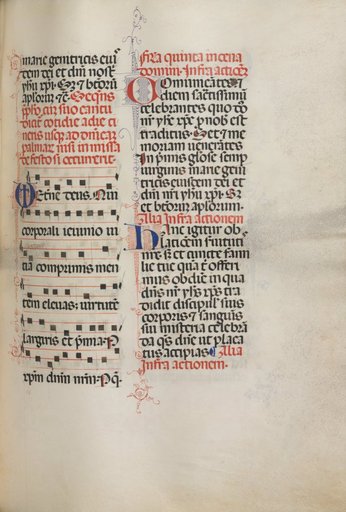 marie genitricis eiusdem
dei et dni nostri
ihu xpi. Sz et beatorum
aplorum tc. Sequens
pfato cum suo cantu
dicitur cotidie a die ci
nerum usque ad dominicam
palmarum nisi in missa
de festo si occurrerit.
eterne deus. Qui
corporali ieiunio vi
tia comprimis men
tem elevas: virtute
largiris et premia. P
xpm dnm nrm. Per que
Feria quinta in cena
domini. Infra actionem
Comunicantes et
diem sacratissimum
celebrantes quo dns
nr yhs xps pro nobis est
traditus. Set et me
moriam venerantes
In primis gloriose semper
virginis marie geni
tricis eiusdem dei et
dni nri yhu xpi. Sz
et beatorum aplorum.
Alia Infra actionem
Hanc igitur ob
lationem servitutis
nre sz et cuncte fami
lie tue qua tibi offeri
mus ob diem in qua
dns nr yhs xps tra
didit discipulis suis
corporis et sanguinis
sui misteria celebran
da qs dne ut placa
tus accipias. Alia
Infra actionem.